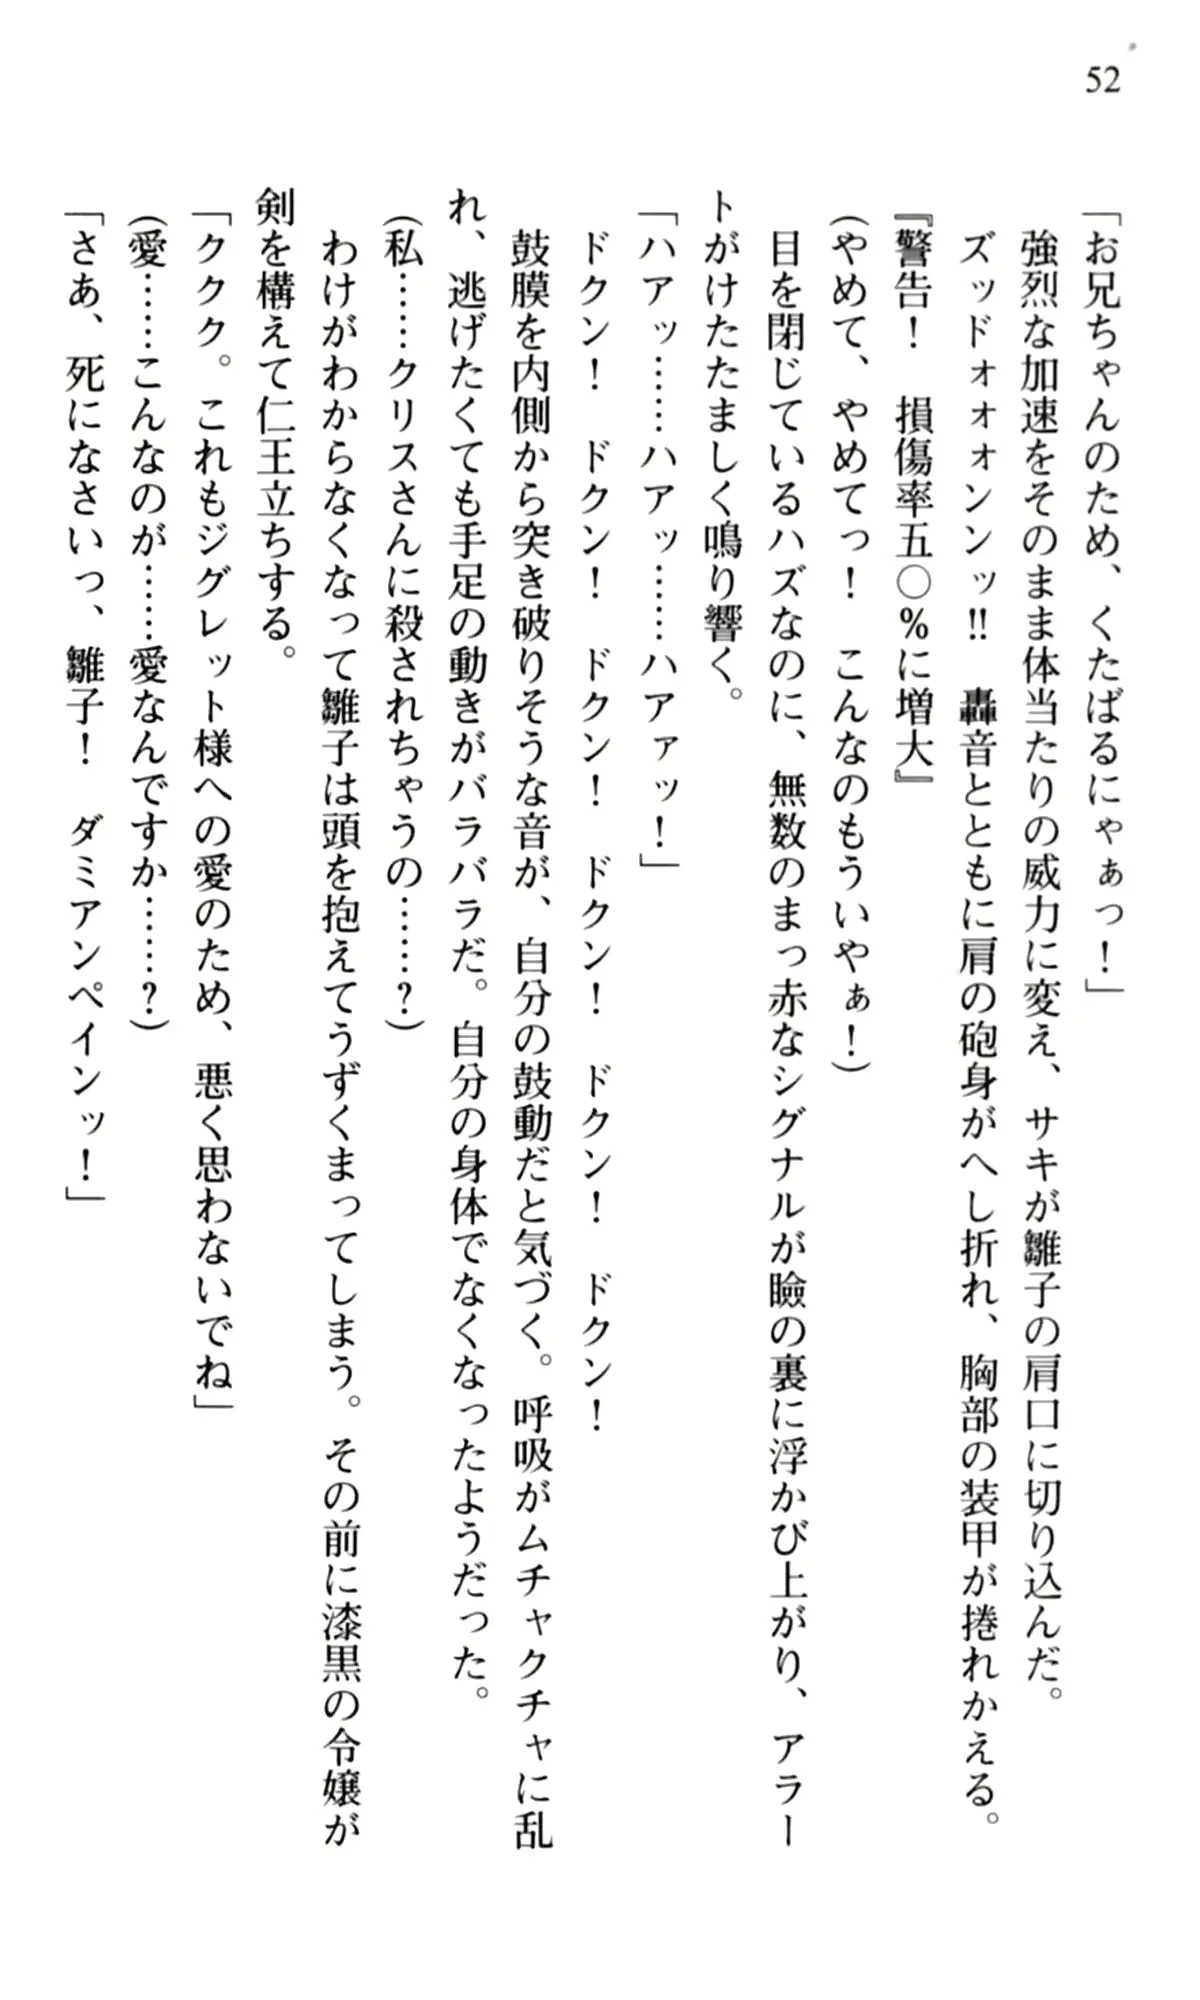 52
「お兄ちゃんのため、くたばるにゃぁっ！」
　強烈な加速をそのまま体当たりの威力に変え、サキが雛子の肩口に切り込んだ。
　ズッドォォォンンッ!!　轟音とともに肩の砲身がへし折れ、胸部の装甲が捲れかえる。
『警告！　損傷率五〇％に増大』
（やめて、やめてっ！　こんなのもういやぁ！）
　目を閉じているハズなのに、無数のまっ赤なシグナルが瞼の裏に浮かび上がり、アラー
トがけたたましく鳴り響く。
「ハアッ……ハアッ……ハアァッ！」
　ドクン！　ドクン！　ドクン！　ドクン！　ドクン！　ドクン！
　鼓膜を内側から突き破りそうな音が、自分の鼓動だと気づく。呼吸がムチャクチャに乱
れ、逃げたくても手足の動きがバラバラだ。自分の身体でなくなったようだった。
（私……クリスさんに殺されちゃうの……？）
　わけがわからなくなって雛子は頭を抱えてうずくまってしまう。その前に漆黒の令嬢が
剣を構えて仁王立ちする。
「ククク。これもジグレット様への愛のため、悪く思わないでね」
（愛……こんなのが……愛なんですか……？）
「さあ、死になさいっ、雛子！　ダミアンペインッ！」